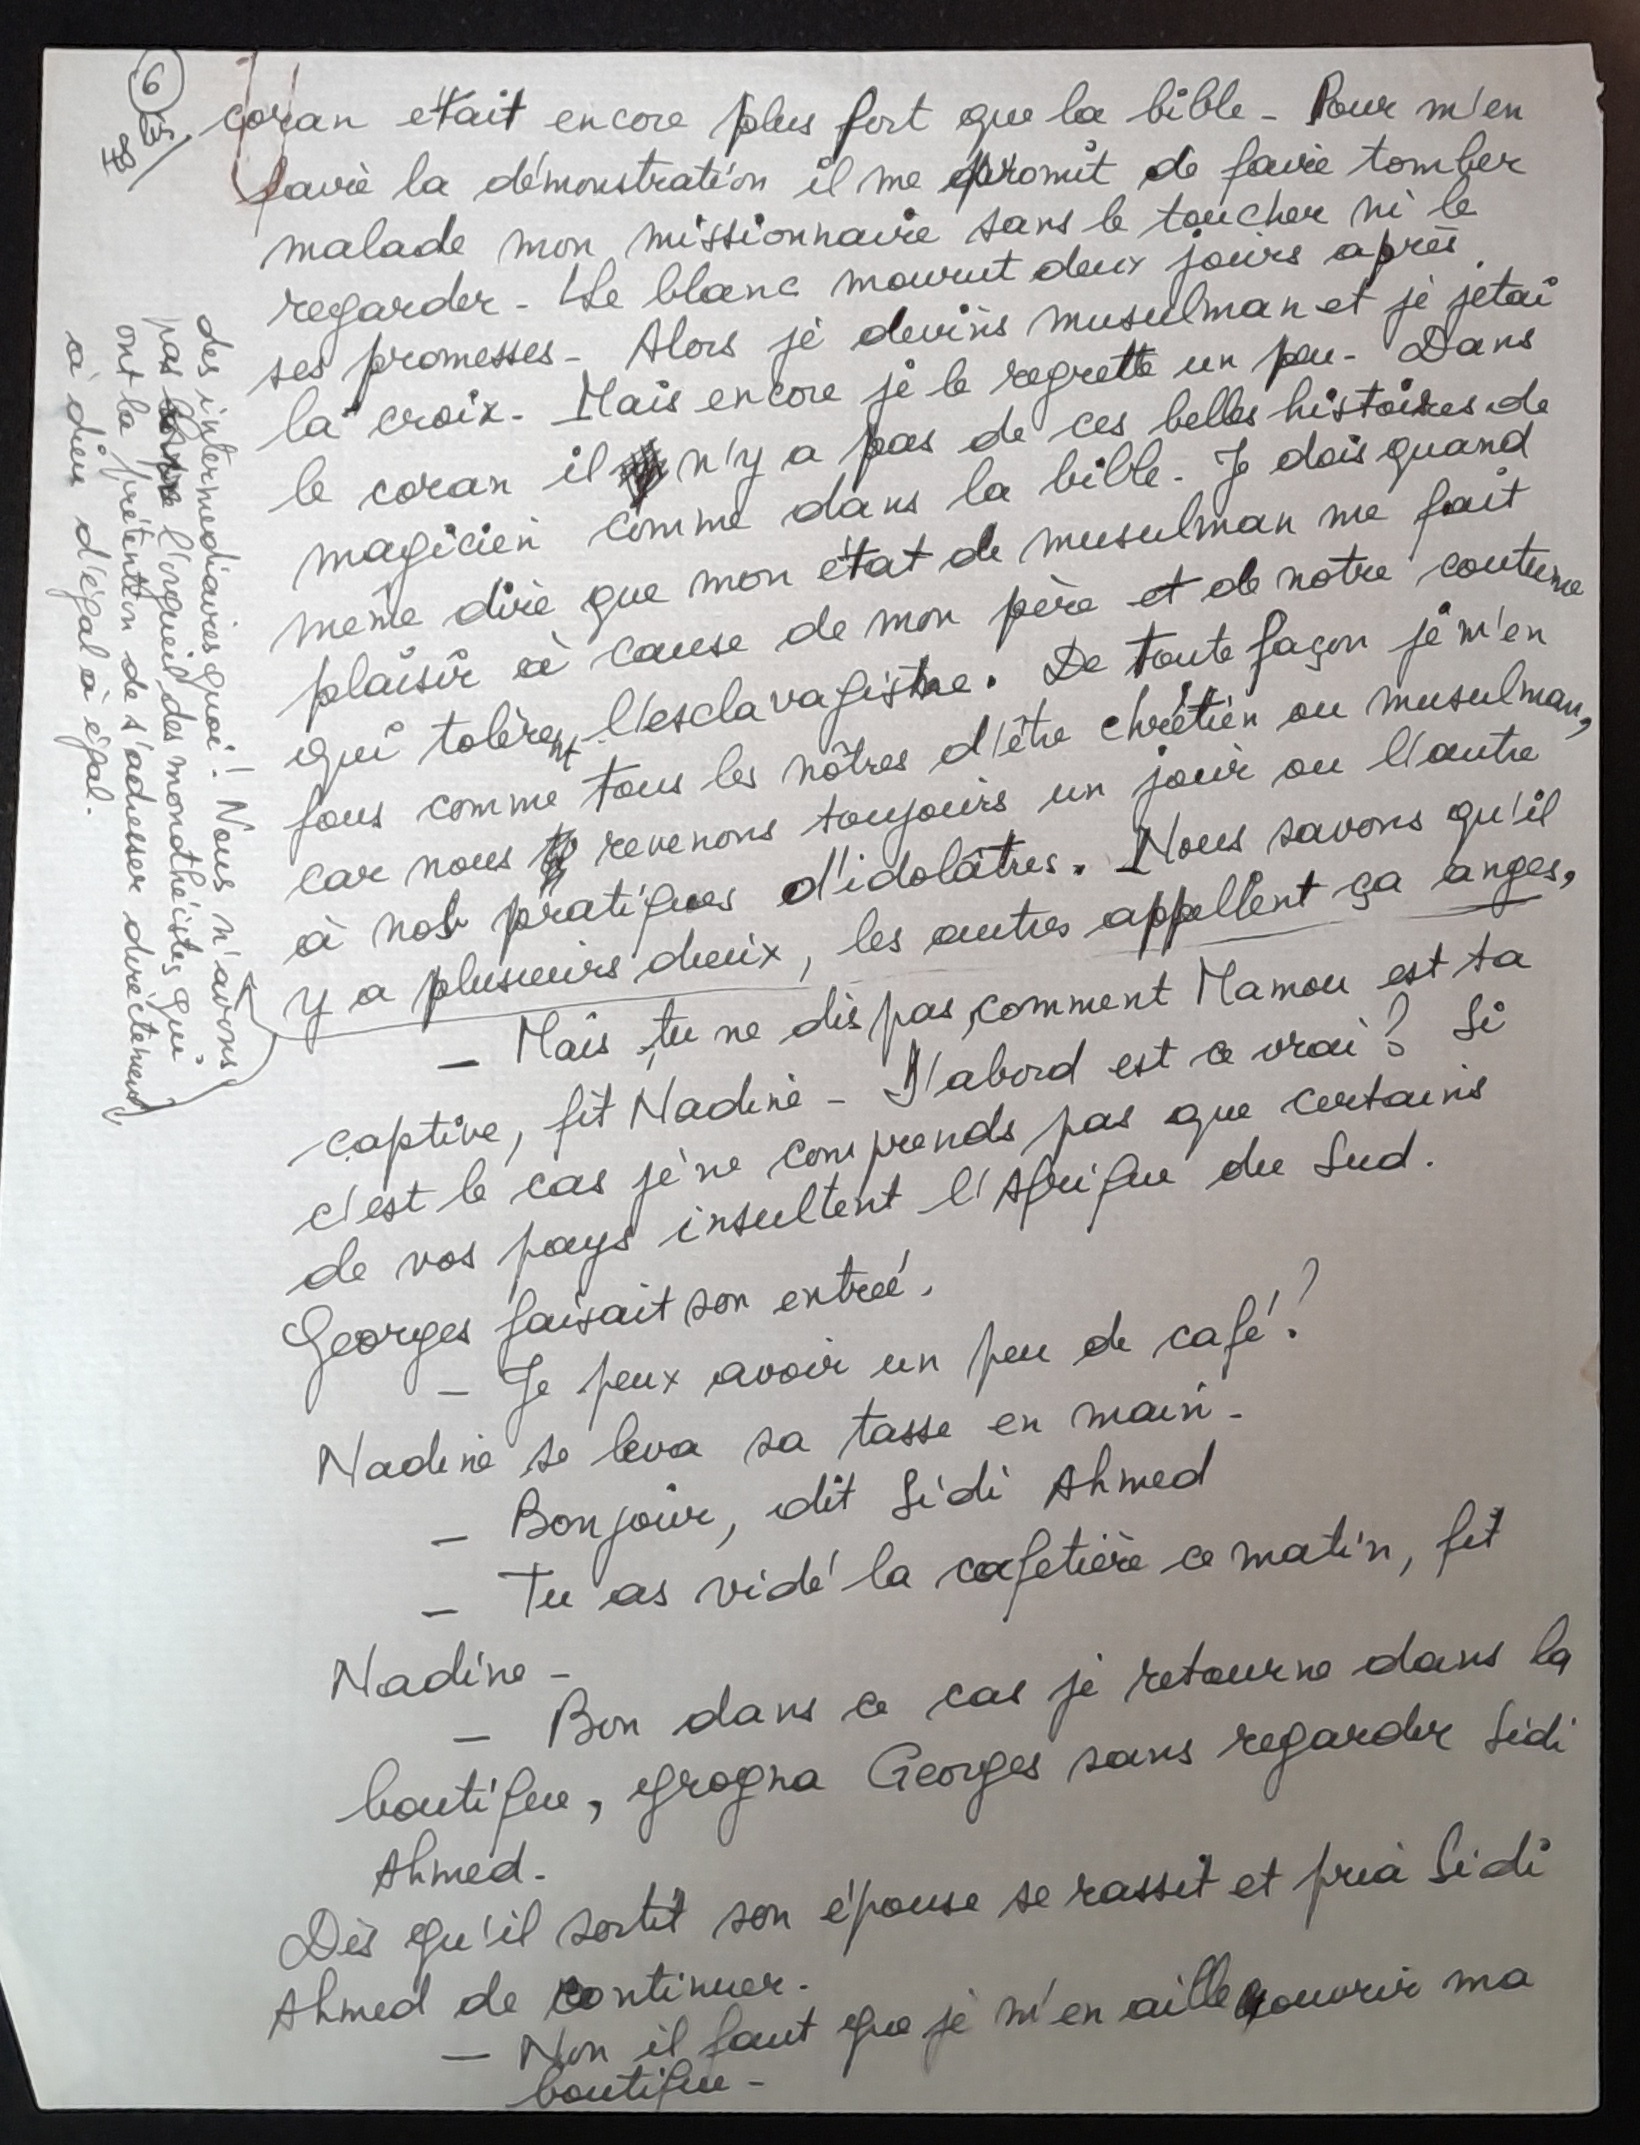 6
coran etait encore plus fort que la bible - Pour m'en
faire la démonstration il me promit de faire tomber
malade mon missionnaire sans le toucher ni le
regarder - Le blanc mourut deux jours après
ses promesses - Alors je devins musulman et je jetai
la croix - Mais encore je le regrette un peu - Dans
le coran il n'y a pas de ces belles histoires de
magicien comme dans la bible - Je dois quand
même dire que mon état de musulman me fait
plaisir à cause de mon père et de notre coutume
qui tolèrent l'esclavagisme. De toute façon je m'en
fous comme tous les nôtres d'être chrétien ou musulman,
car nous revenons toujours un jour ou l'autre
à nos pratiques d'idolâtres. Nous savons qu'il
y a plusieurs dieux, les autres appellent ça anges,
des intermediaires quoi! Nous n'avons
pas l'orgueil des monothéistes qui
ont la prétention de s'adresser directement
à dieu d'égal à égal.
- Mais tu ne dis pas comment Mamou est ta
captive, fit Nadine - D'abord est ce vrai? Si
c'est le cas je ne comprends pas que certains
de vos pays insultent l'Afrique du Sud.
Georges faisait son entreé.
- Je peux avoir un peu de café?
Nadine se leva sa tasse en main -
- Bonjour, dit Sidi Ahmed
- Tu as vidé la cafetière ce matin, fit
Nadine -
- Bon dans ce cas je retourne dans la
boutique, grogna Georges sans regarder Sidi
Ahmed -
Dès qu'il sortit son épouse se rassit et pria Sidi
Ahmed de continuer -
- Non il faut que je m'en aille ouvrir ma
boutique -